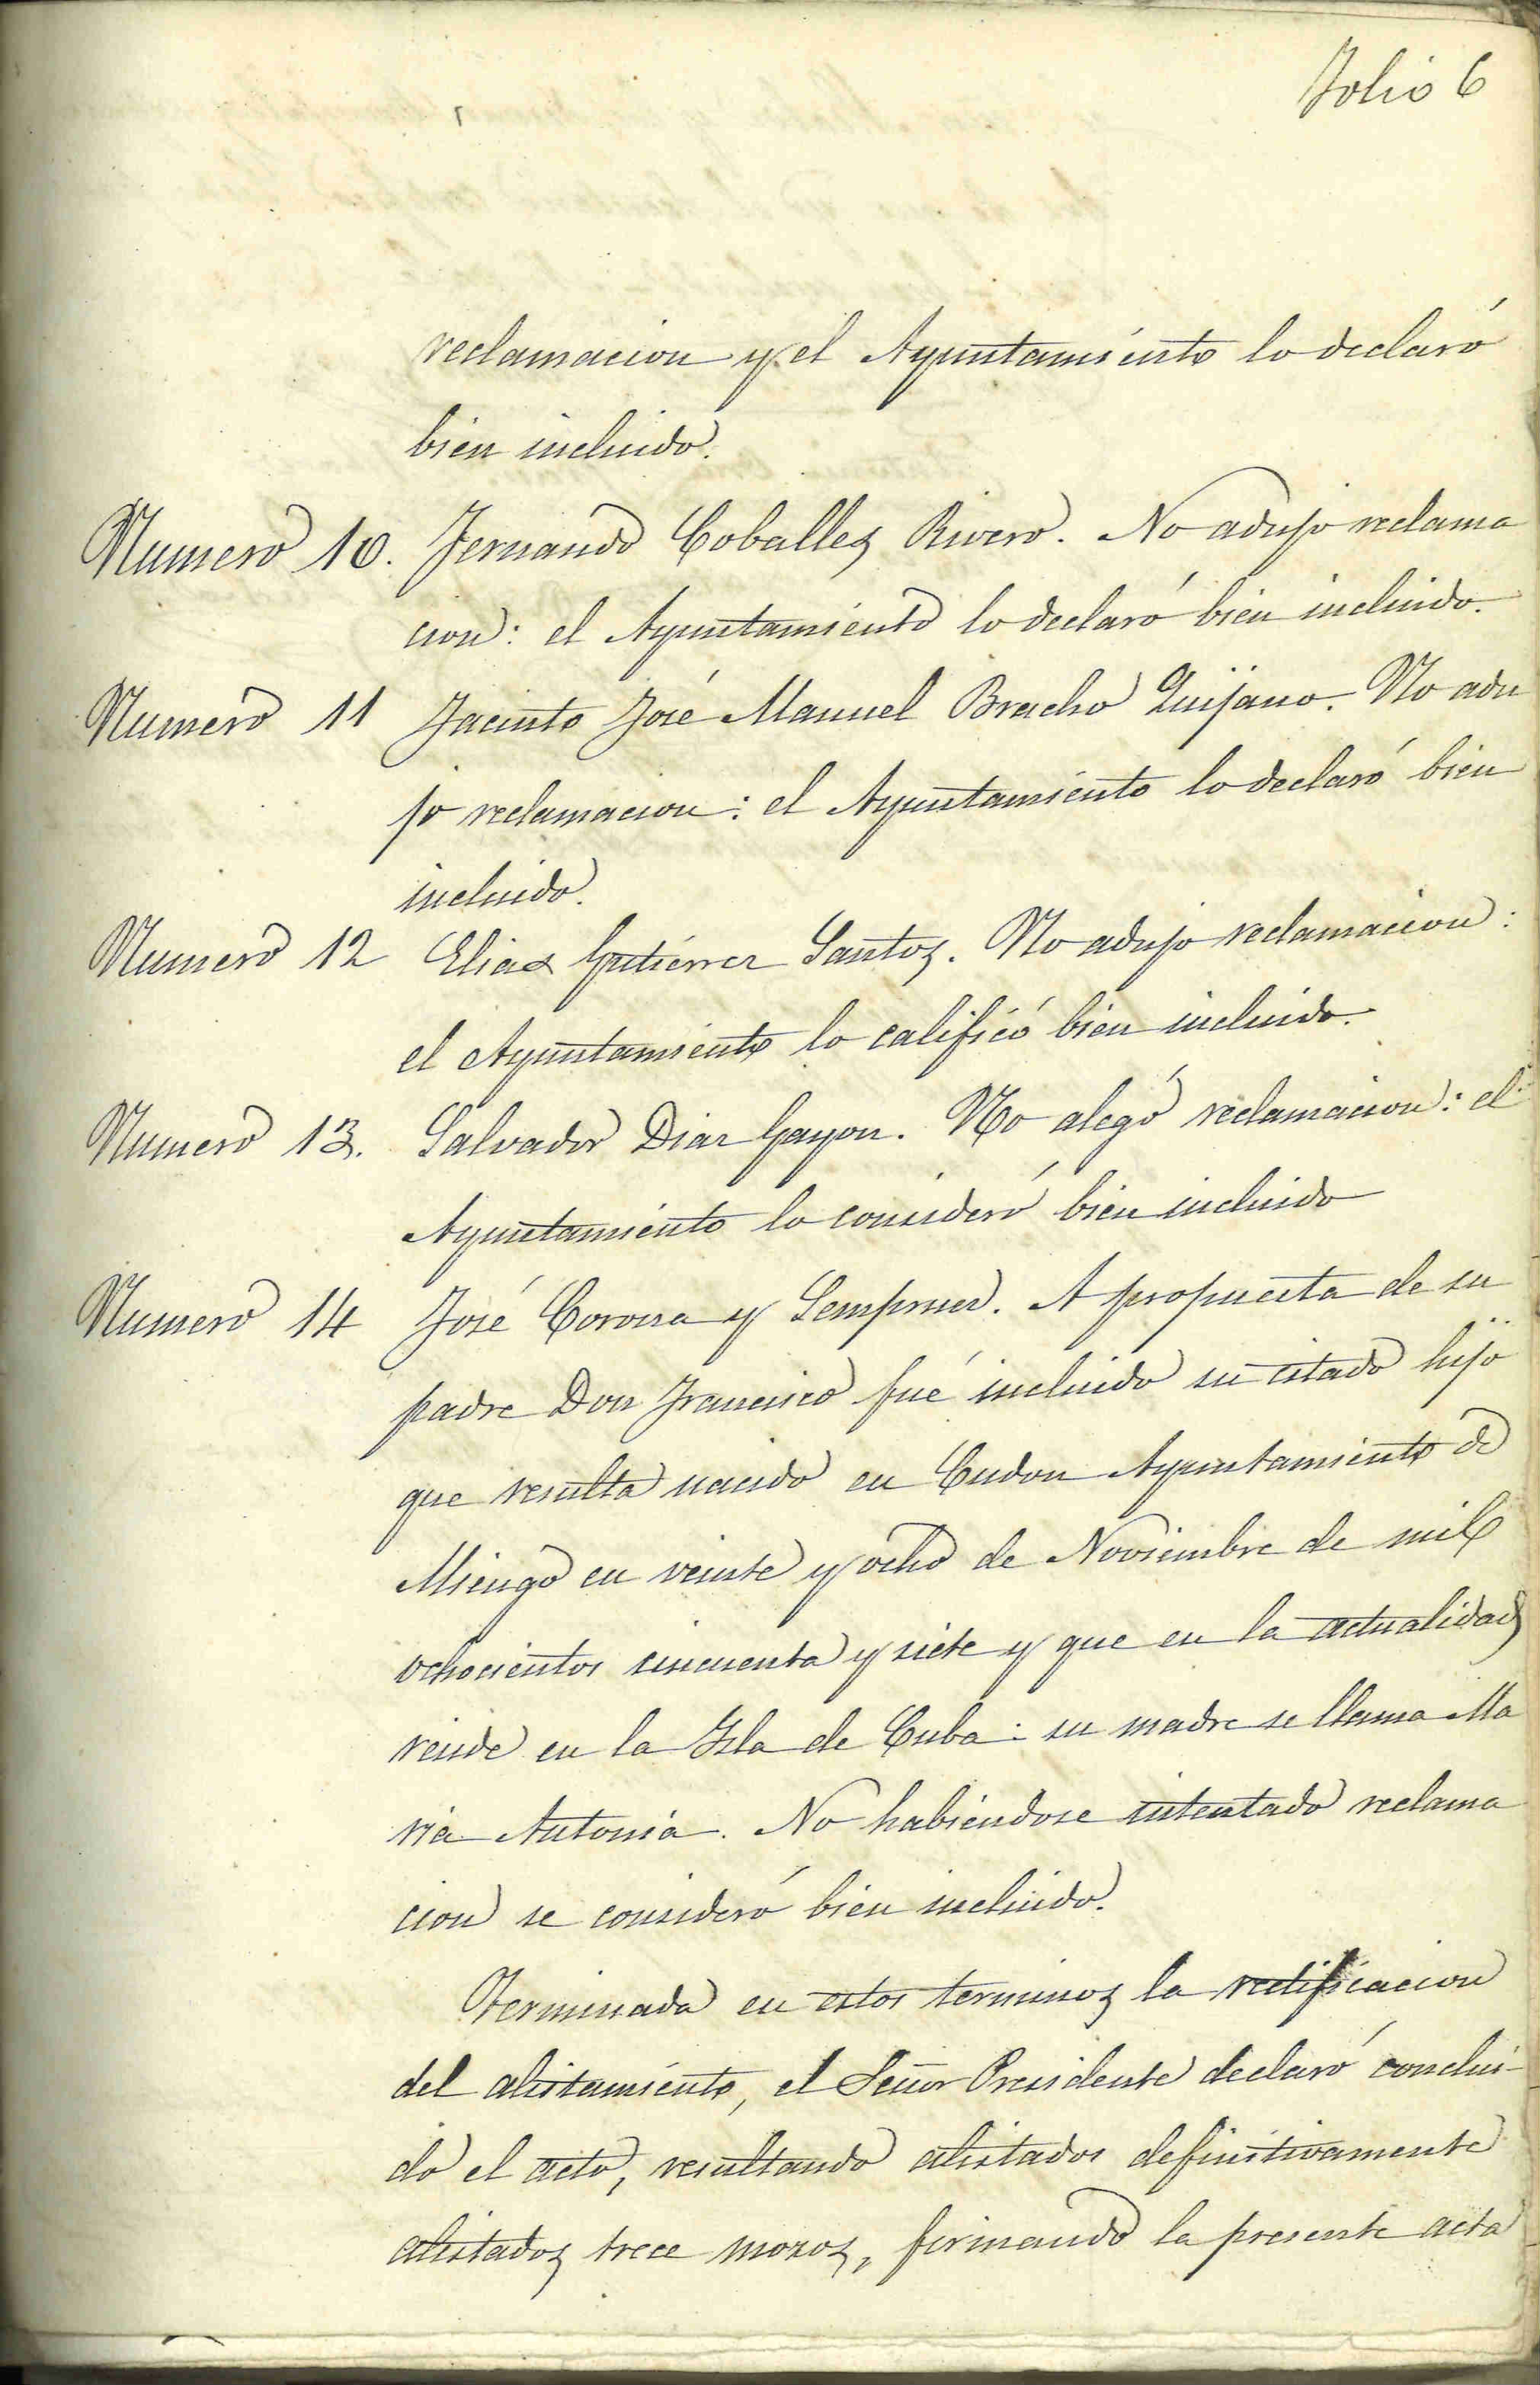 Folio 6
reclamacion y el Ayuntamiento lo declaró
bien incluido.
Numero 10. Fernando Coballes Rivero. No adujo reclama
cion: el Ayuntamiento lo declaró bien incluido.
Numero 11 Jacinto José Manuel Bracho Quijano. No adu
jo reclamacion: el Ayuntamiento lo declaró bien
incluido.
Numero 12 Elias Gutiérrez Santos. No adujo reclamacion:
el Ayuntamiento lo calificó bien incluido.
Numero 13. Salvador Diaz Gayon. No alegó reclamacion: el
Ayuntamiento lo consideró bien incluido
Numero 14 José Corona y Semprun. A propuesta de su
padre Don Francisco fué incluido su citado hijo
que resulta nacido en Cudon Ayuntamiento de
Miengo en veinte y ocho de Noviembre de mil
ochocientos cincuenta y siete y que en la actualidad
reside en la Isla de Cuba: su madre se llama Ma
ria Antonia. No habiéndose intentado reclama
cion se consideró bien incluido.
Terminada en estos terminos la rectificacion
del alistamiento, el Señor Presidente declaró conclui-
do el acto, resultando alistados definitivamente
alistados trece mozos, firmando la presente acta